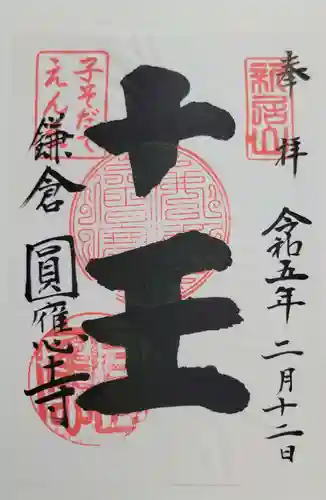 奉拝
令和五年二月十二日
新居山
十王
子そだて
えんま
鎌倉
圓應寺